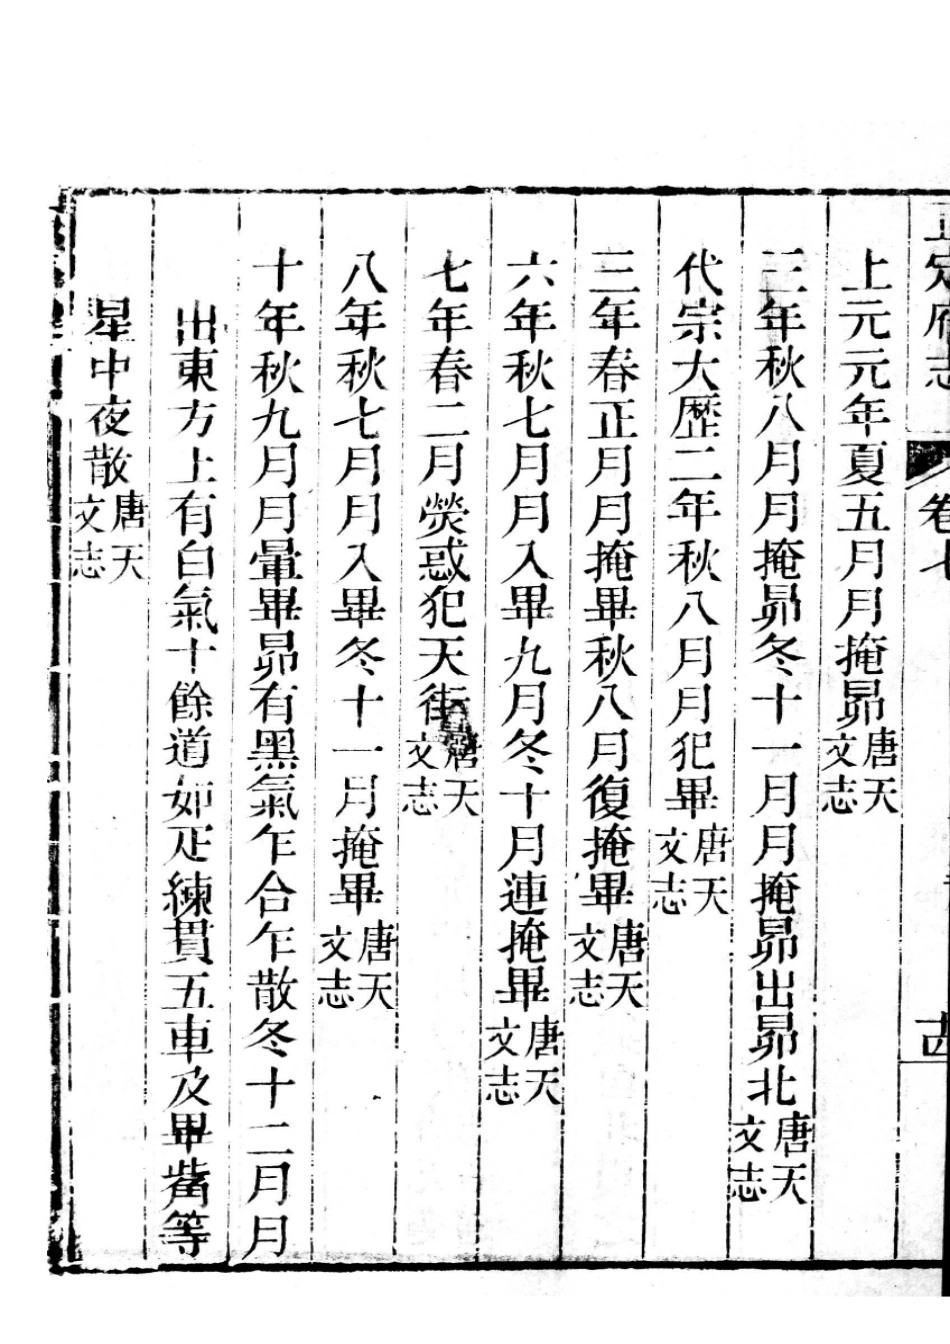 正定府志 卷七
上元元年夏五月月掩昴唐天文志
三年秋八月月掩昴冬十一月月掩昴出昴北唐天文志
代宗大歷二年秋八月月犯畢唐天文志
三年春正月月掩畢秋八月復掩畢唐天文志
六年秋七月月入畢九月冬十月連掩畢唐天文志
七年春二月熒惑犯天街唐天文志
八年秋七月月入畢冬十一月掩畢唐天文志
十年秋九月月暈畢昴有黑氣乍合乍散冬十二月月
出東方上有白氣十餘道如疋練貫五車及畢觜等
星中夜散唐天文志